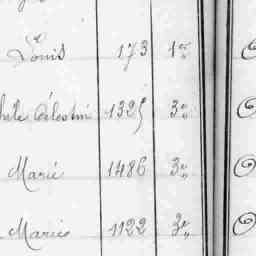 Louis 173 1er
Célestin 1325 3e
Marie 1486 3e
Marie 1122 3e